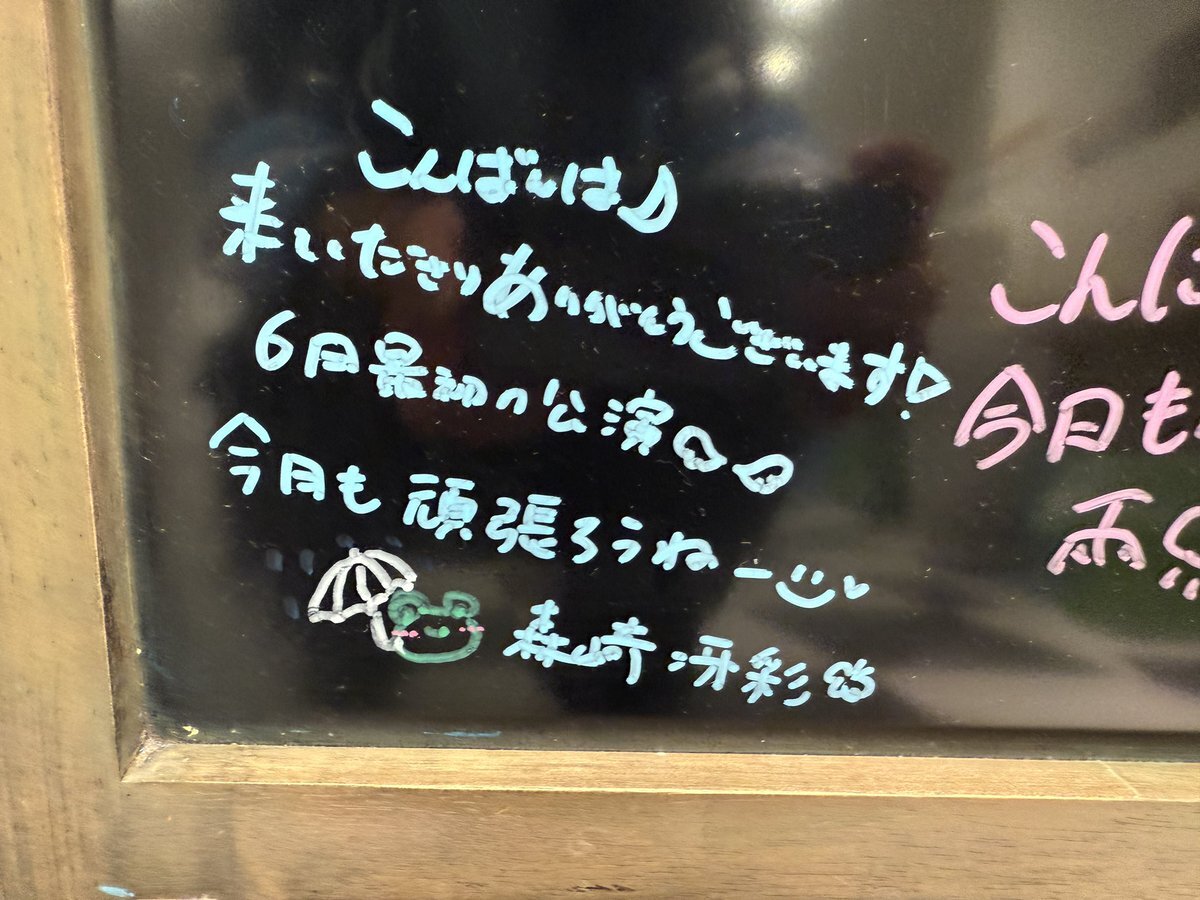 こんばんは♪
来いたださりありがとうございます!
6月最初の公演
今月も頑張ろうねー
森崎冴彩
こんば
今日も
雨